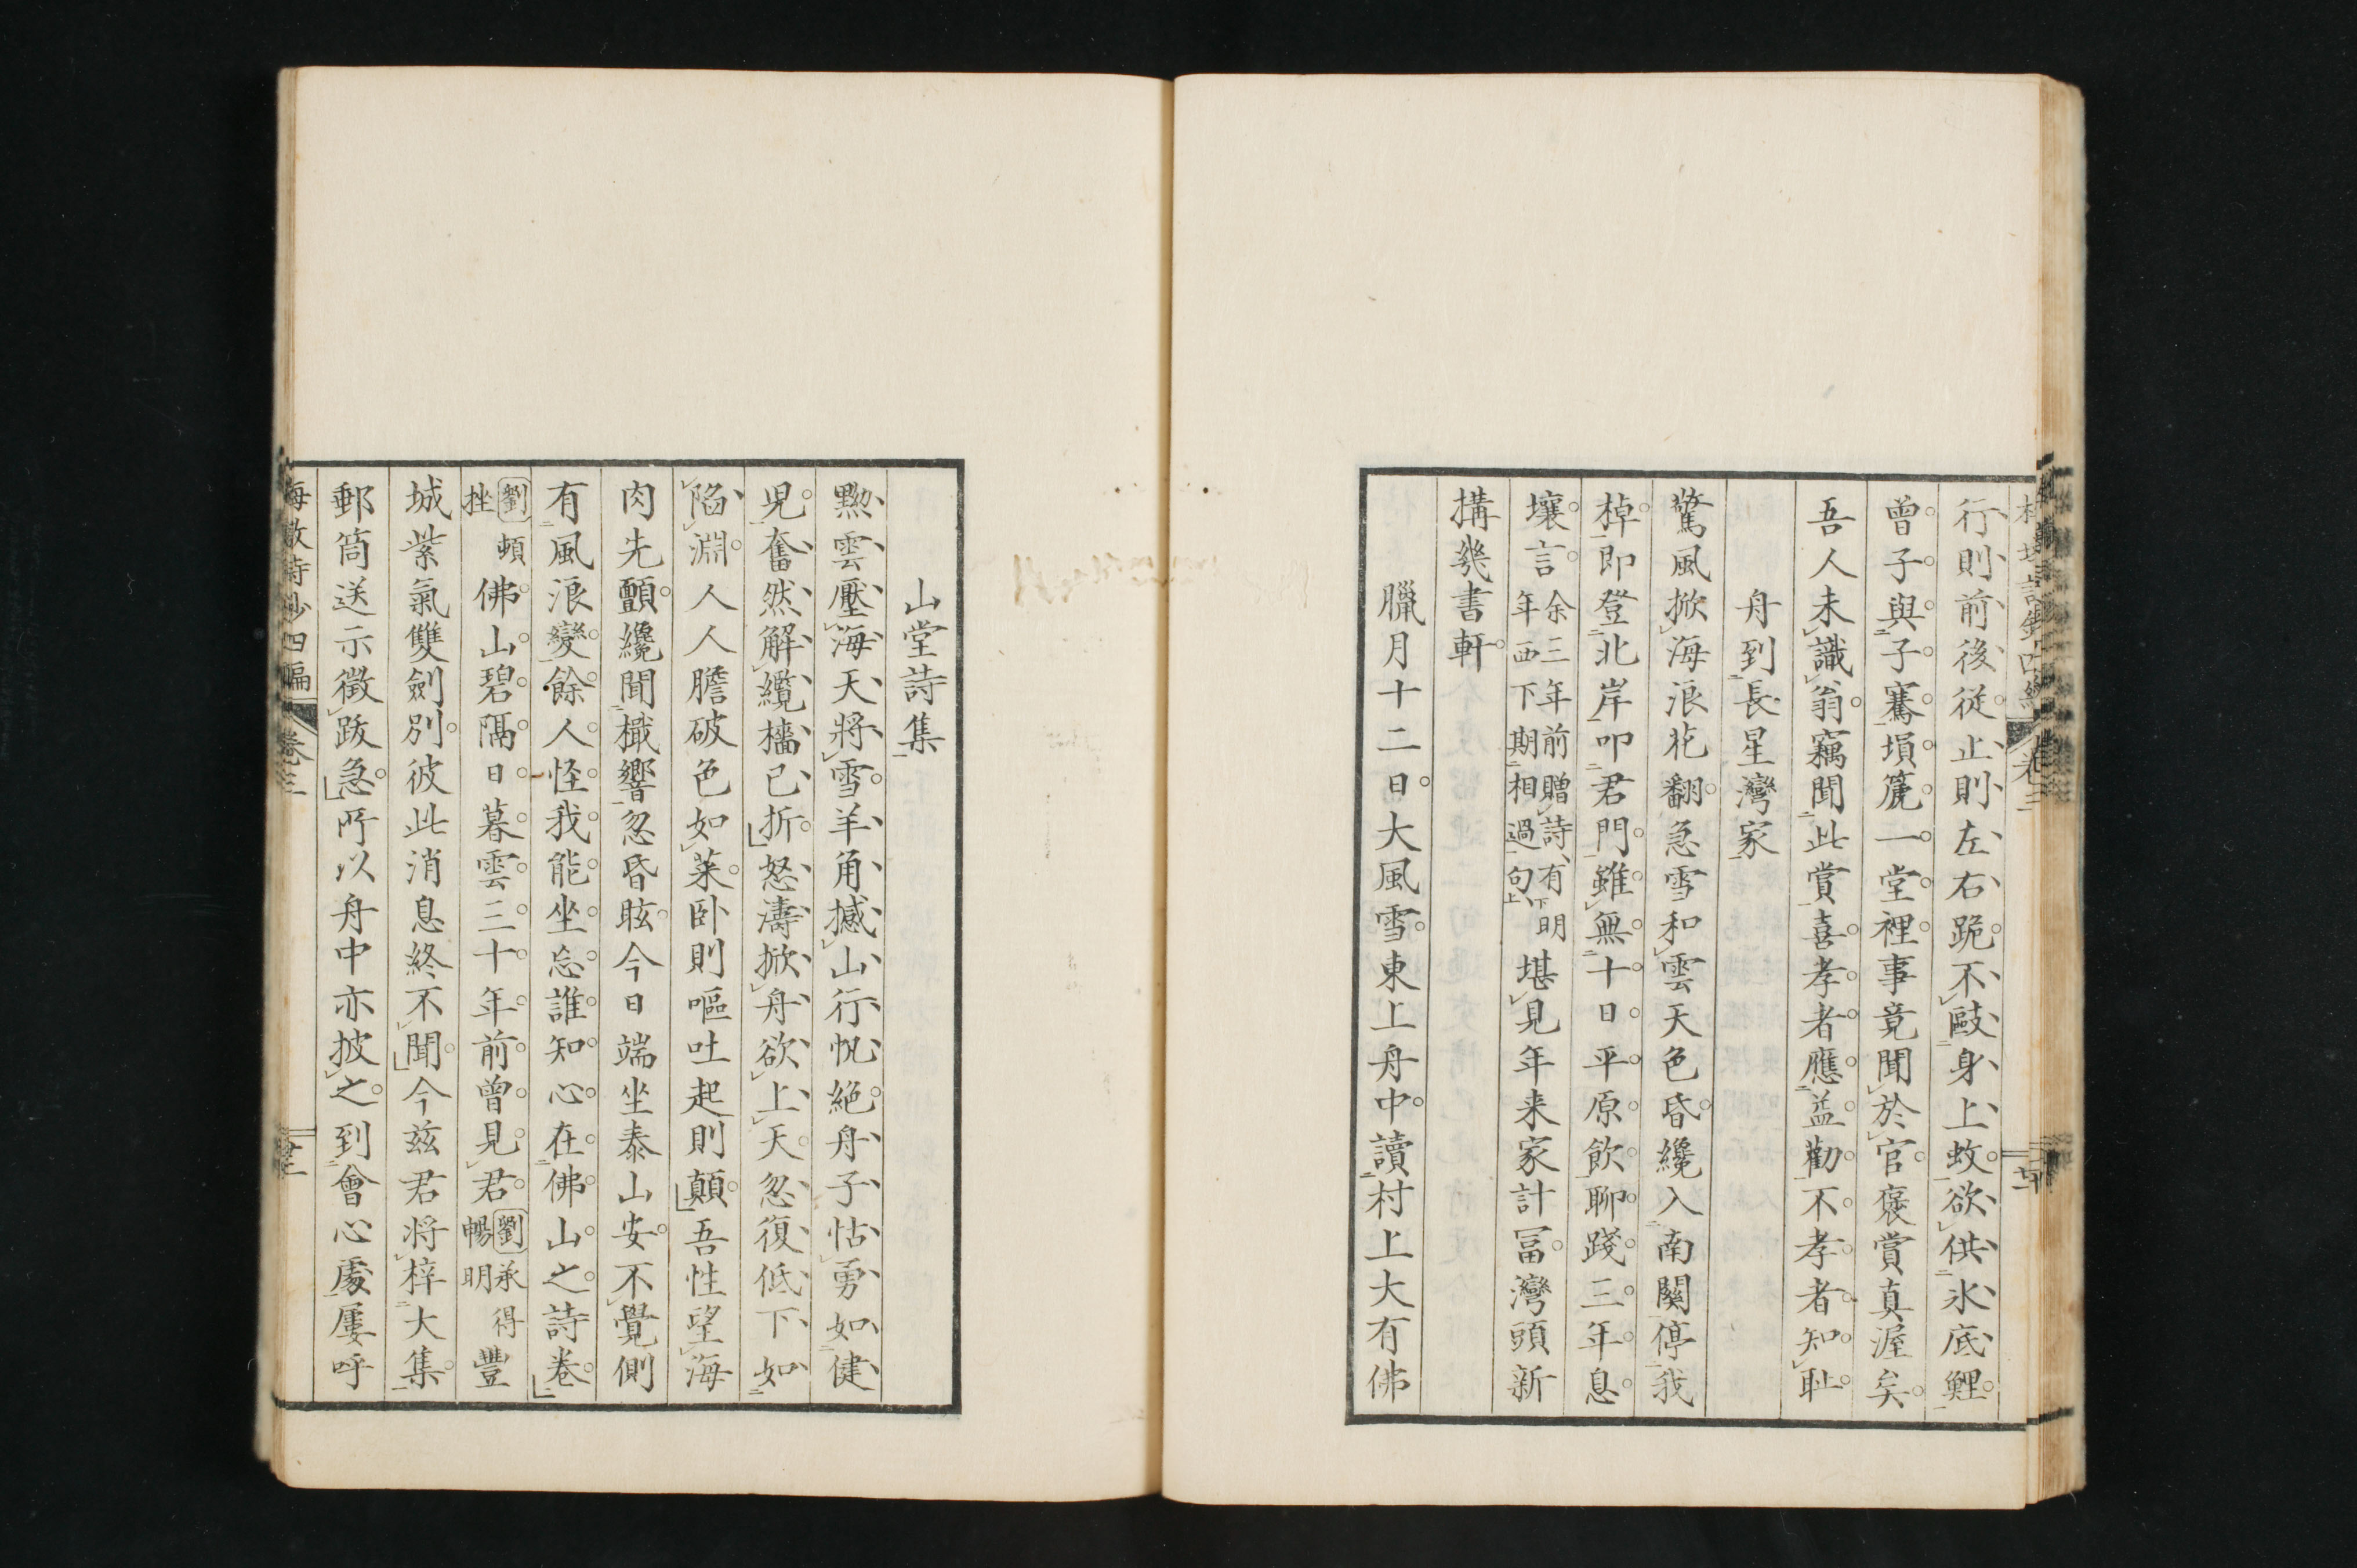 行則前後従止則左右跪不敺身上蚊欲供氷底鯉
曾子與子騫塤箎一堂裡事竟聞於官褒賞真渥矣
吾人未識翁竊聞此賞喜孝者應益勸不孝者知耻
舟到長星灣家
驚風掀海浪花翻急雪和雲天色昏纔入南關停我
棹即登北岸叩君門雖無十日平原飲聊踐三年息
壤言余三年前贈詩有明年西下期相過句堪見年来家計冨灣頭新
搆幾書軒
臘月十二日大風雪東上舟中讀村上大有佛
山堂詩集
黝雲壓海天將雪羊角撼山行帆絶舟子怙勇如健
児奮然解纜檣已折怒濤掀舟欲上天忽復低下如
陷淵人人膽破色如菜卧則嘔吐起則顛吾性望海
肉先顫纔聞檝響忽昏眩今日端坐泰山安不覺側
有風浪變餘人怪我能坐忘誰知心在佛山之詩卷
劉頓挫佛山碧隔日暮雲三十年前曾見君劉承得暢明豐
城紫氣雙劍別彼此消息終不聞今茲君将梓大集
郵筒送示徴跋急所以舟中亦披之到會心處屢呼
詩鈔四編 卷三